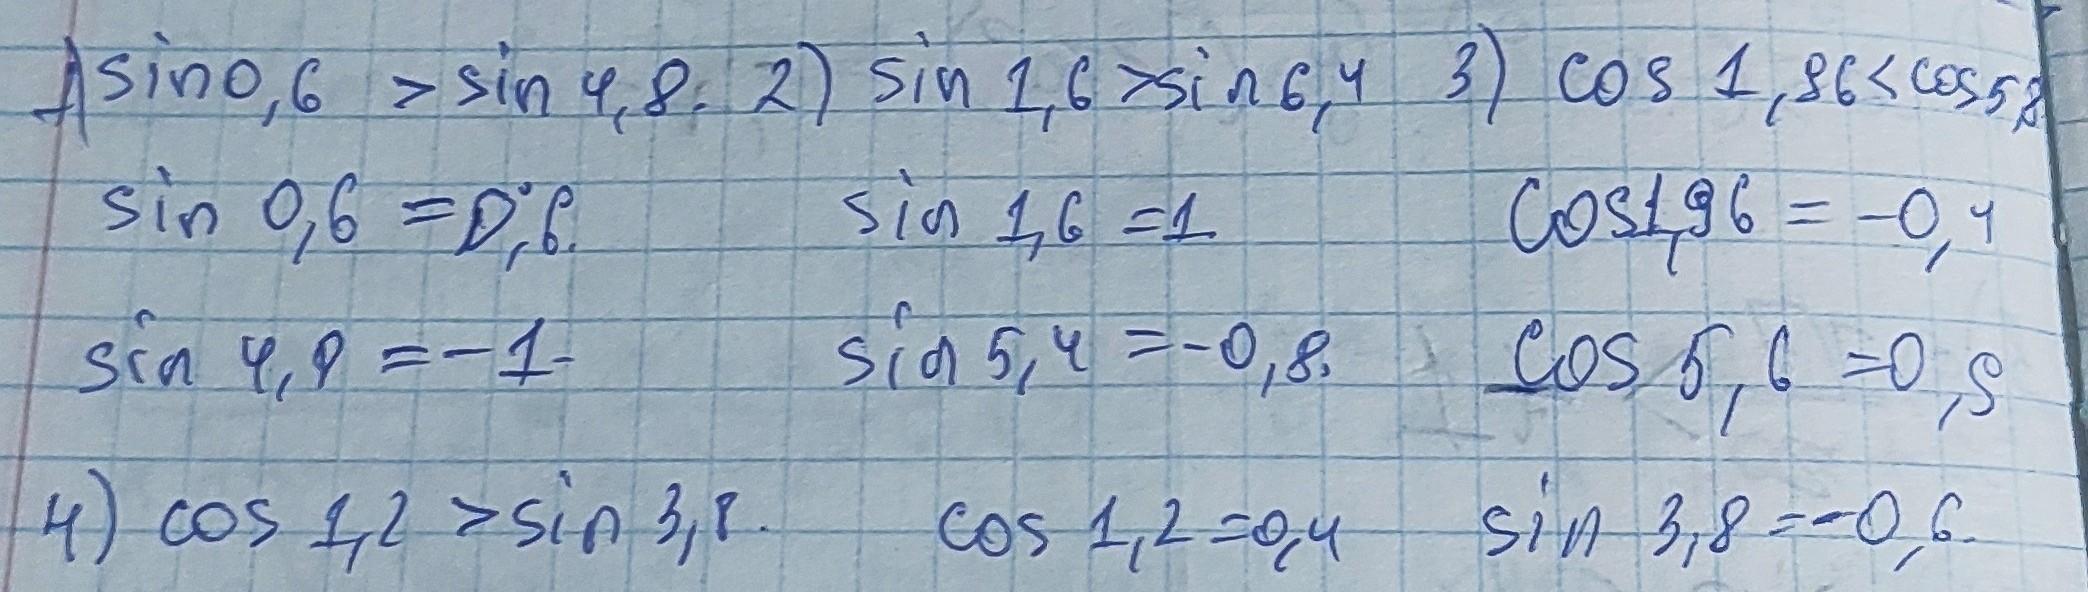 1) sin 0,6 > sin 4,8. 2) sin 1,6 > sin 6,4 3) cos 1,96 < cos 5,8
sin 0,6 = 0,6. sin 1,6 = 1. cos 1,96 = -0,4
sin 4,8 = -1. sin 5,4 = -0,8. cos 5,6 = 0,8
4) cos 1,2 > sin 3,8. cos 1,2 = 0,4 sin 3,8 = -0,6.